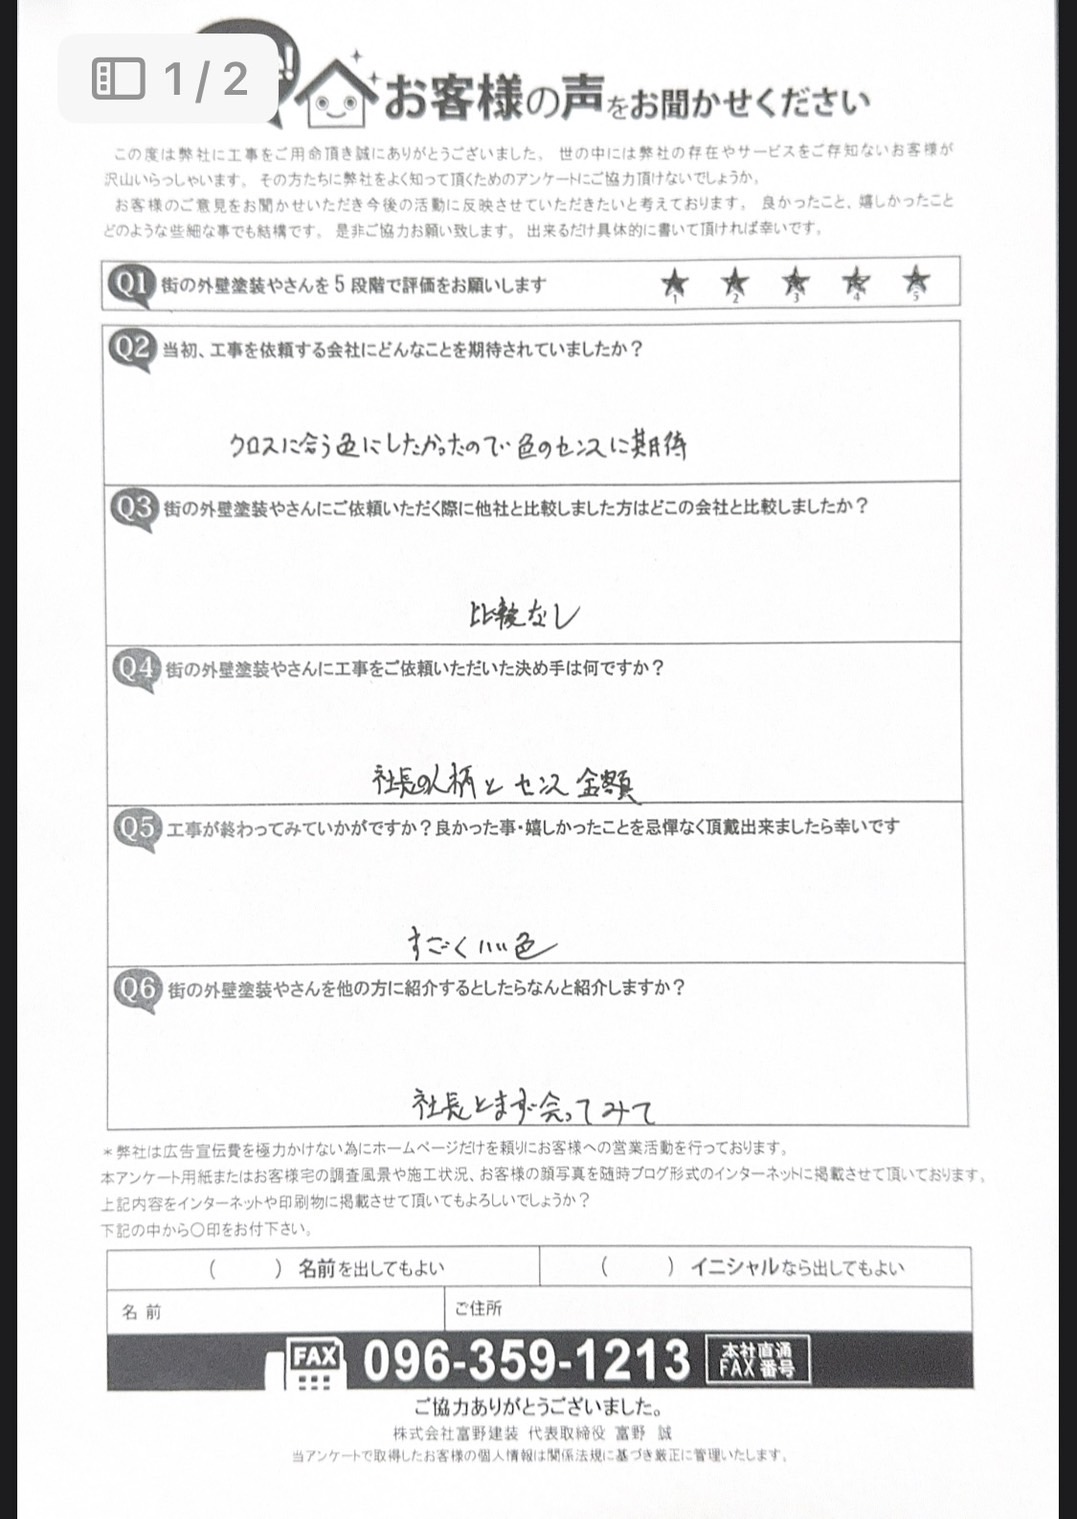 1/2
!
お客様の声をお聞かせください
この度は弊社に工事をご用命頂き誠にありがとうございました。 世の中には弊社の存在やサービスをご存知ないお客様が
沢山いらっしゃいます。 その方たちに弊社をよく知って頂くためのアンケートにご協力頂けないでしょうか。
お客様のご意見をお聞かせいただき今後の活動に反映させていただきたいと考えております。 良かったこと、嬉しかったこと
どのような些細な事でも結構です。 是非ご協力お願い致します。 出来るだけ具体的に書いて頂ければ幸いです。
Q1 街の外壁塗装やさんを5段階で評価をお願いします ★ ★ ★ ★ ★
1 2 3 4 5
Q2 当初、工事を依頼する会社にどんなことを期待されていましたか？
クロスに合う色にしたかったので 色のセンスに期待
Q3 街の外壁塗装やさんにご依頼いただく際に他社と比較しました方はどこの会社と比較しましたか？
比較なし
Q4 街の外壁塗装やさんに工事をご依頼いただいた決め手は何ですか？
社長の人柄と センス 金額
Q5 工事が終わってみていかがですか？良かった事・嬉しかったことを忌憚なく頂戴出来ましたら幸いです
すごくいい色
Q6 街の外壁塗装やさんを他の方に紹介するとしたらなんと紹介しますか？
社長とまず会ってみて
＊弊社は広告宣伝費を極力かけない為にホームページだけを頼りにお客様への営業活動を行っております。
本アンケート用紙またはお客様宅の調査風景や施工状況、お客様の顔写真を随時ブログ形式のインターネットに掲載させて頂いております。
上記内容をインターネットや印刷物に掲載させて頂いてもよろしいでしょうか？
下記の中から〇印をお付下さい。
（　　　）名前を出してもよい （　　　）イニシャルなら出してもよい
名 前 ご住所
FAX 096-359-1213 本社直通
FAX番号
ご協力ありがとうございました。
株式会社富野建装 代表取締役 富野 誠
当アンケートで取得したお客様の個人情報は関係法規に基づき厳正に管理いたします。